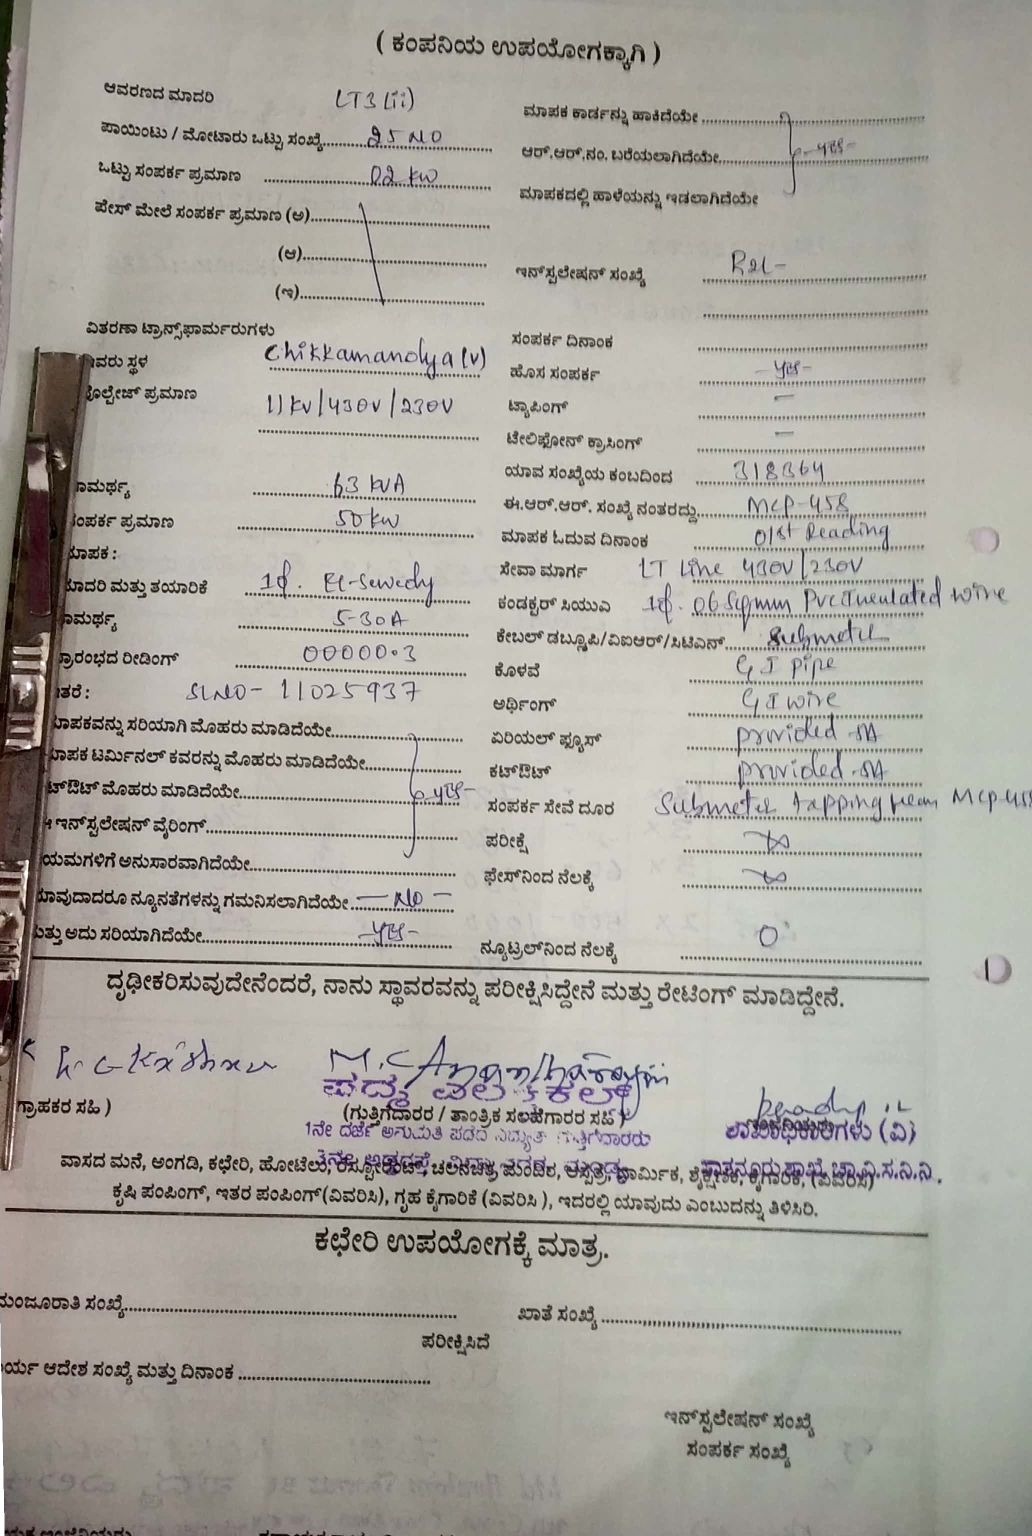 ( ಕಂಪನಿಯ ಉಪಯೋಗಕ್ಕಾಗಿ )
ಆವರಣದ ಮಾದರಿ LT3(ii)
ಪಾಯಿಂಟು / ಮೋಟಾರು ಒಟ್ಟು ಸಂಖ್ಯೆ 25 NO
ಒಟ್ಟು ಸಂಪರ್ಕ ಪ್ರಮಾಣ 02 KW
ಪೇಸ್ ಮೇಲೆ ಸಂಪರ್ಕ ಪ್ರಮಾಣ (ಅ)
(ಆ)
(ಇ)
ವಿತರಣಾ ಟ್ರಾನ್ಸ್‌ಫಾರ್ಮರುಗಳು
ಸ್ಥಳ Chikkamandya (V)
ಪ್ರಮಾಣ 11KV/430V/230V
63 KVA
ಪ್ರಮಾಣ 50 KW
ಮತ್ತು ತಯಾರಿಕೆ 1φ. El-Sewedy
5-30A
ರೀಡಿಂಗ್ 00000.3
SLNO- 11025937
ಸರಿಯಾಗಿ ಮೊಹರು ಮಾಡಿದೆಯೇ
ಟರ್ಮಿನಲ್ ಕವರನ್ನು ಮೊಹರು ಮಾಡಿದೆಯೇ
ಮೊಹರು ಮಾಡಿದೆಯೇ -yes-
ಇನ್‌ಸ್ಪಲೇಷನ್ ವೈರಿಂಗ್
ಅನುಸಾರವಾಗಿದೆಯೇ
ನ್ಯೂನತೆಗಳನ್ನು ಗಮನಿಸಲಾಗಿದೆಯೇ -NO-
ಅದು ಸರಿಯಾಗಿದೆಯೇ -yes-
ಮಾಪಕ ಕಾರ್ಡನ್ನು ಹಾಕಿದೆಯೇ
ಆರ್.ಆರ್.ನಂ. ಬರೆಯಲಾಗಿದೆಯೇ -yes-
ಮಾಪಕದಲ್ಲಿ ಹಾಳೆಯನ್ನು ಇಡಲಾಗಿದೆಯೇ
ಇನ್‌ಸ್ಪಲೇಷನ್ ಸಂಖ್ಯೆ
ಸಂಪರ್ಕ ದಿನಾಂಕ
ಹೊಸ ಸಂಪರ್ಕ -yes-
ಟ್ಯಾಪಿಂಗ್ -
ಟೇಲಿಫೋನ್ ಕ್ರಾಸಿಂಗ್ -
ಯಾವ ಸಂಖ್ಯೆಯ ಕಂಬದಿಂದ 318364
ಈ.ಆರ್.ಆರ್. ಸಂಖ್ಯೆ ನಂತರದ್ದು MCP-458
ಮಾಪಕ ಓದುವ ದಿನಾಂಕ 01st Reading
ಸೇವಾ ಮಾರ್ಗ LT Line 430V/230V
ಕಂಡಕ್ಟರ್ ಸಿಯುವಿ 1φ. 06 Sqmm PVC Insulated wire
ಕೇಬಲ್ ಡಬ್ಲೂಪಿ/ವಿಐಆರ್/ಸಿಟಿಎನ್ Submeter
ಕೊಳವೆ GI pipe
ಅರ್ಥಿಂಗ್ GI wire
ಏರಿಯಲ್ ಫ್ಯೂಸ್ provided-5A
ಕಟ್‌ಔಟ್ provided-5A
ಸಂಪರ್ಕ ಸೇವೆ ದೂರ Submeter tapping from MCP-458
ಪರೀಕ್ಷೆ
ಫೇಸ್‌ನಿಂದ ನೆಲಕ್ಕೆ
ನ್ಯೂಟ್ರಲ್‌ನಿಂದ ನೆಲಕ್ಕೆ 0
ದೃಢೀಕರಿಸುವುದೇನೆಂದರೆ, ನಾನು ಸ್ಥಾವರವನ್ನು ಪರೀಕ್ಷಿಸಿದ್ದೇನೆ ಮತ್ತು ರೇಟಿಂಗ್ ಮಾಡಿದ್ದೇನೆ.
ಗ್ರಾಹಕರ ಸಹಿ )
(ಗುತ್ತಿಗೆದಾರರ / ತಾಂತ್ರಿಕ ಸಲಹೆಗಾರರ ಸಹಿ)
ಶಾಖಾಧಿಕಾರಿಗಳು (ವಿ)
1ನೇ ದರ್ಜೆ ಅನುಮತಿ ಪಡೆದ ವಿದ್ಯುತ್ ಗುತ್ತಿಗೆದಾರರು
ವಾಸದ ಮನೆ, ಅಂಗಡಿ, ಕಛೇರಿ, ಹೋಟೆಲು, ರೆಸ್ಟೋರೆಂಟ್, ಚಲನಚಿತ್ರ ಮಂದಿರ, ಆಸ್ಪತ್ರೆ, ಧಾರ್ಮಿಕ, ಶೈಕ್ಷಣಿಕ, ಕೈಗಾರಿಕೆ, (ವಿವರಿಸಿ)
ಕೃಷಿ ಪಂಪಿಂಗ್, ಇತರ ಪಂಪಿಂಗ್(ವಿವರಿಸಿ), ಗೃಹ ಕೈಗಾರಿಕೆ (ವಿವರಿಸಿ ), ಇದರಲ್ಲಿ ಯಾವುದು ಎಂಬುದನ್ನು ತಿಳಿಸಿರಿ.
ಕಛೇರಿ ಉಪಯೋಗಕ್ಕೆ ಮಾತ್ರ.
ಮಂಜೂರಾತಿ ಸಂಖ್ಯೆ
ಖಾತೆ ಸಂಖ್ಯೆ
ಪರೀಕ್ಷಿಸಿದೆ
ಆದೇಶ ಸಂಖ್ಯೆ ಮತ್ತು ದಿನಾಂಕ
ಇನ್‌ಸ್ಪಲೇಷನ್ ಸಂಖ್ಯೆ
ಸಂಪರ್ಕ ಸಂಖ್ಯೆ